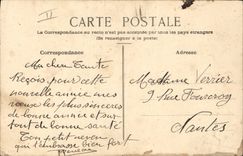 CARTE POSTALE
La Correspondance au recto n'est pas acceptée par tous les pays étrangers
(Se renseigner à la poste)
Correspondance
Adresse
Ma chère Tante
Reçois pour cette
nouvelle année mes
vœux les plus sincères
de bonne année et sur
tout de bonne santé
Ton petit neveu
qui t'embrasse bien fort
Madame Verrier
9 Rue Fourcroy
Nantes